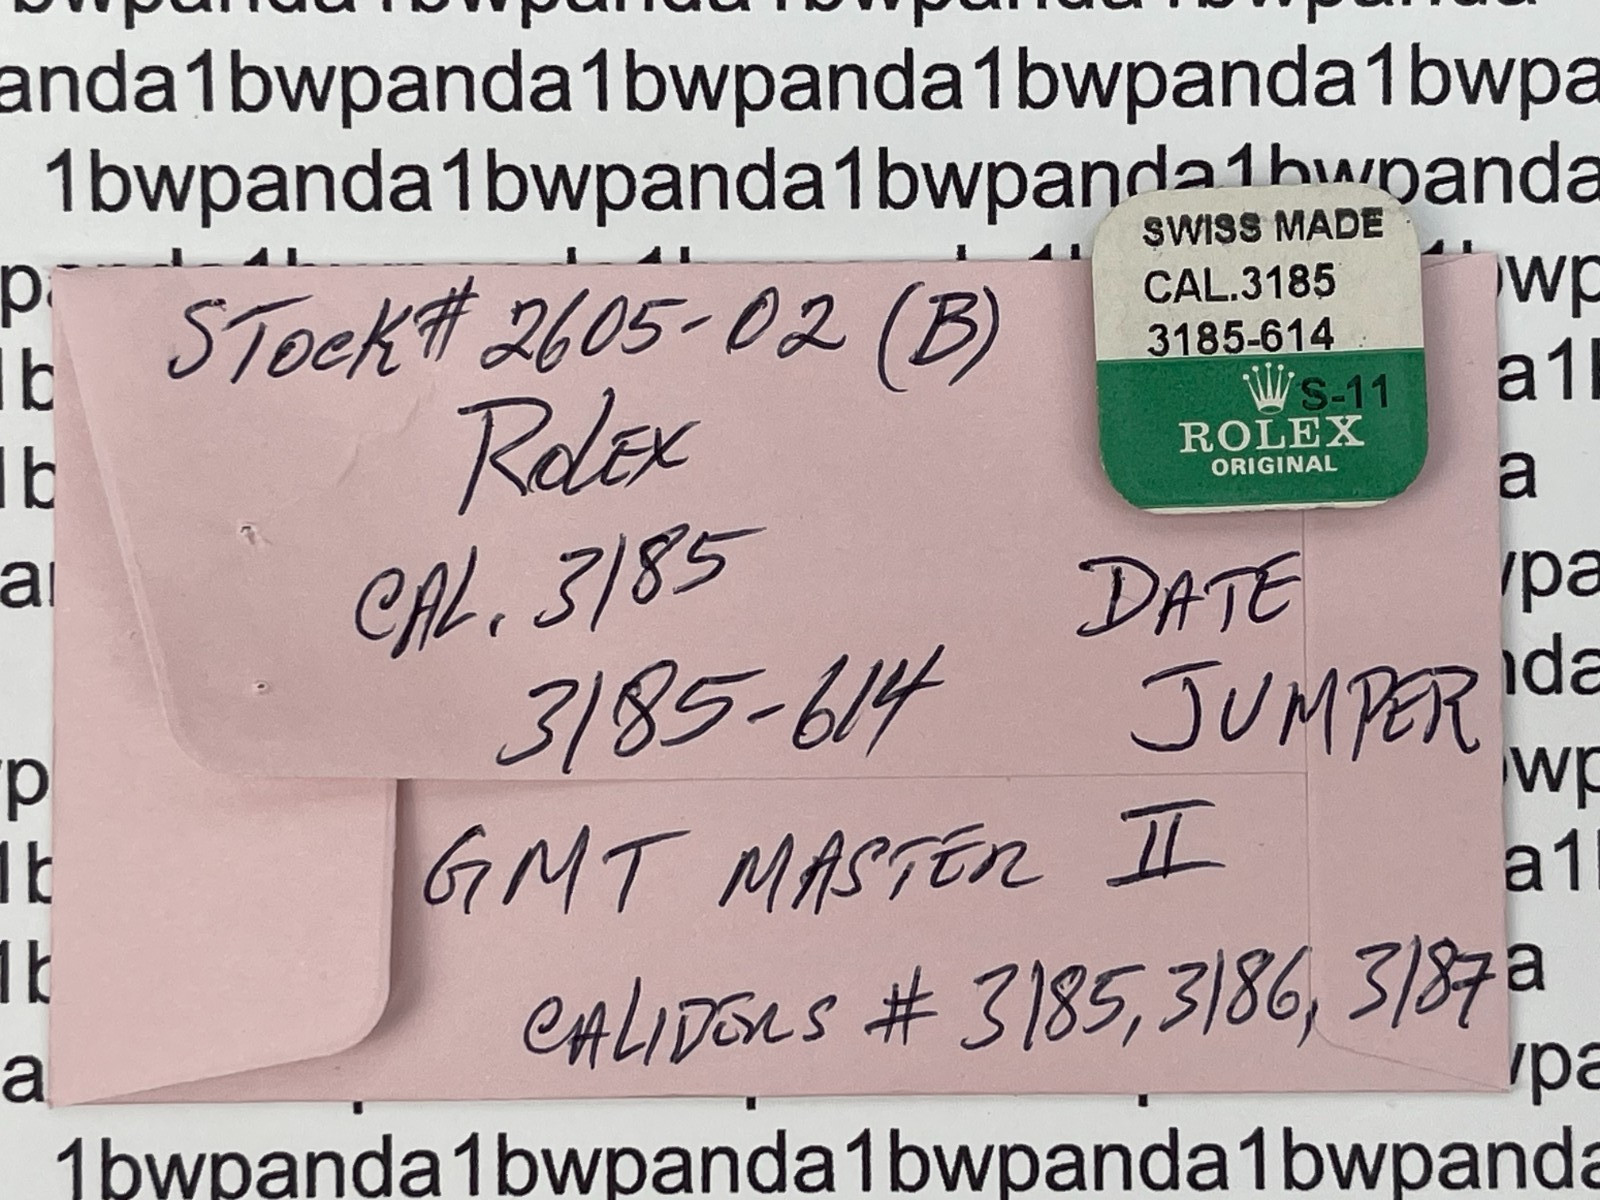 bwpanda1bwpanda1bwpanda1bwpanda
anda1bwpanda1bwpanda1bwpanda1bwpa
1bwpanda1bwpanda1bwpanda1bwpanda
SWISS MADE
CAL.3185
3185-614
S-11
ROLEX
ORIGINAL
STOCK# 2605-02 (B)
ROLEX
CAL. 3185
3185-614
DATE
JUMPER
GMT MASTER II
CALIBERS # 3185, 3186, 3187
1bwpanda1bwpanda1bwpanda1bwpanda